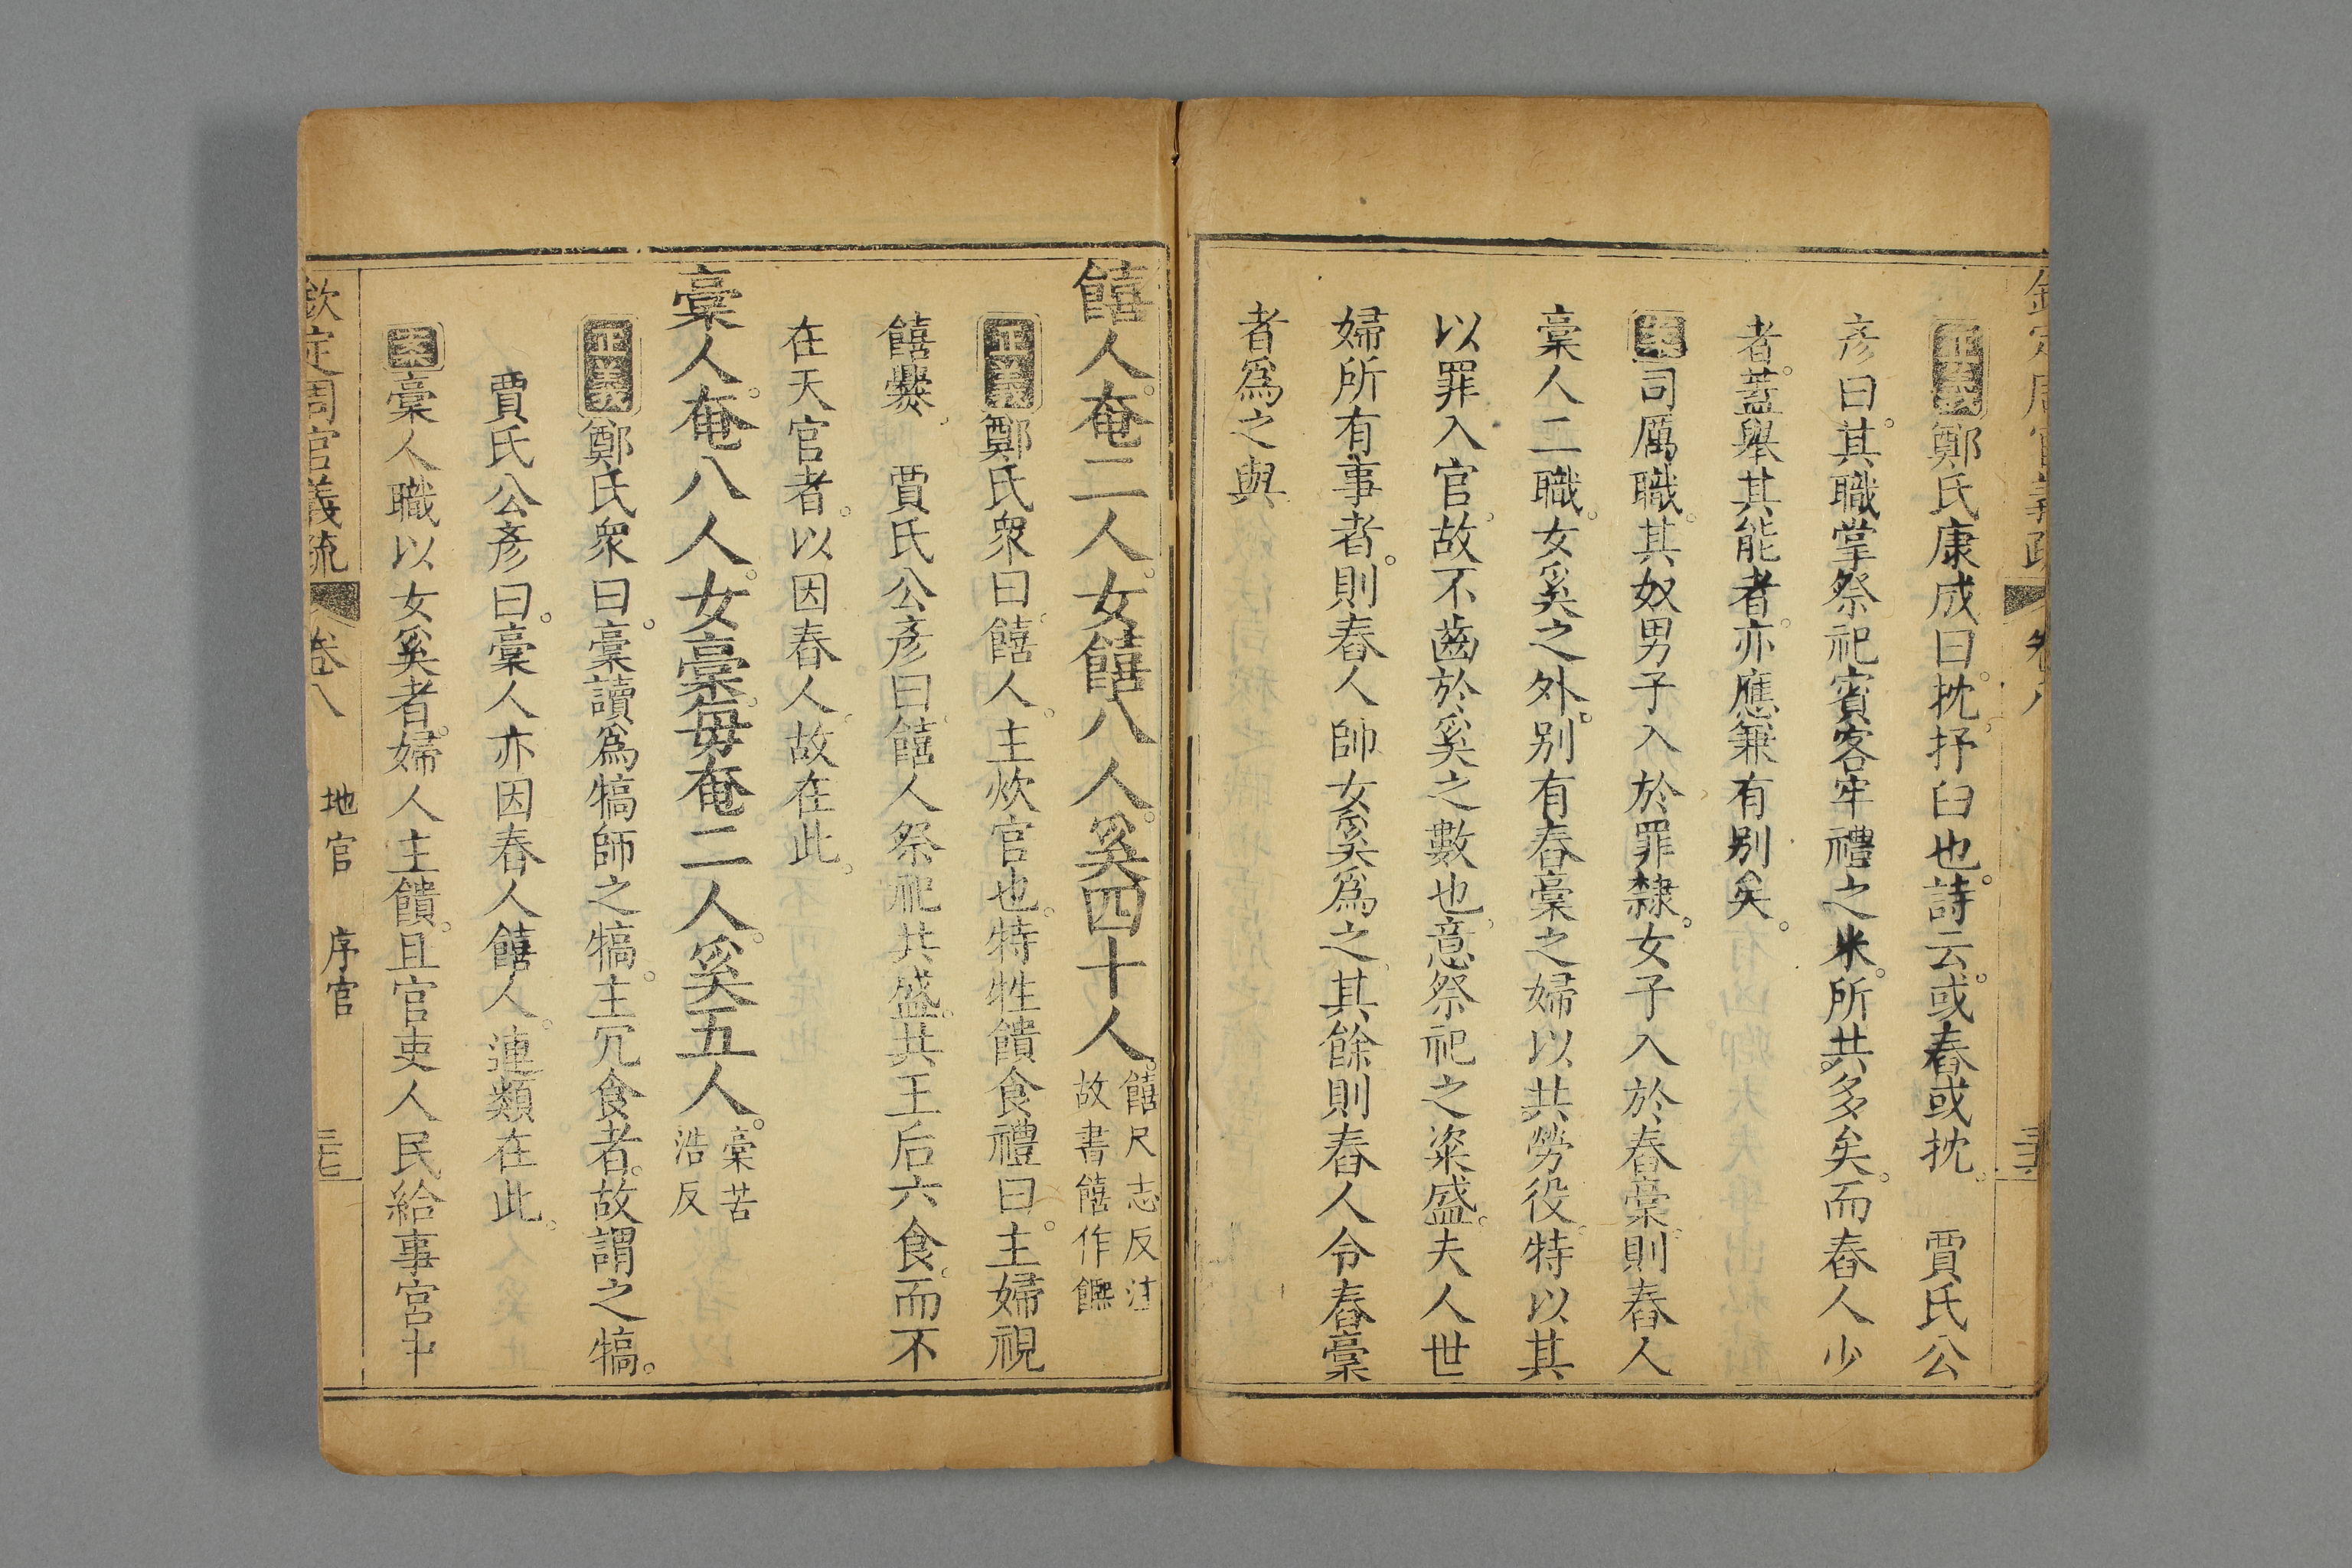 欽定周官義疏 卷八
正義鄭氏康成曰。抌。抒臼也。詩云。或舂或抌。 賈氏公
彥曰。其職掌祭祀賓客牢禮之米。所共多矣。而舂人少
者。蓋舉其能者。亦應兼有别矣。
案司厲職。其奴男子入於罪隸。女子入於舂稾。則舂人
稾人二職。女奚之外。别有舂稾之婦以共勞役。特以其
以罪入官。故不齒於奚之數也。意祭祀之粢盛。夫人世
婦所有事者。則舂人帥女奚爲之。其餘則舂人令舂稾
者爲之與
饎人。奄二人。女饎八人。奚四十人。饎尺志反注
故書饎作𩟔
正義鄭氏衆曰。饎人。主炊官也。特牲饋食禮曰。主婦視
饎爨。 賈氏公彥曰。饎人祭祀共盛。共王后六食。而不
在天官者。以因舂人。故在此。
稾人。奄八人。女稾。每奄二人。奚五人。稾苦
浩反
正義鄭氏衆曰。稾讀爲犒師之犒。主冗食者。故謂之犒。
賈氏公彥曰。稾人亦因舂人饎人。連類在此。
案稾人職以女奚者。婦人主饋。且官吏人民給事宮中
欽定周官義疏 卷八 地官 序官 三七